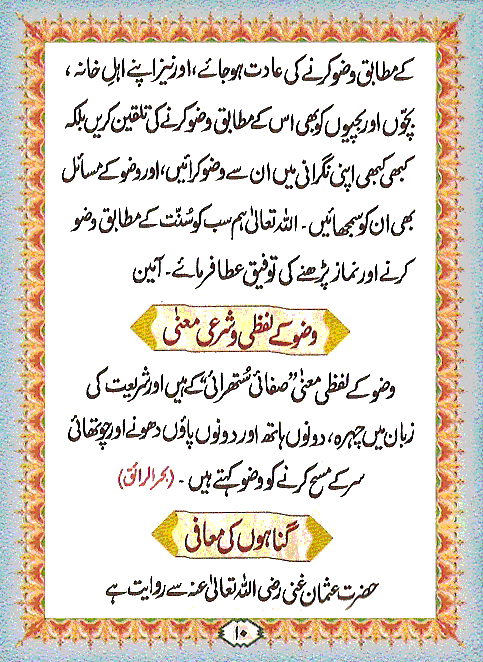 کے مطابق وضو کرنے کی عادت ہو جائے، اور نیز اپنے اہلِ خانہ،
بچّوں اور بچیوں کو بھی اس کے مطابق وضو کرنے کی تلقین کریں بلکہ
کبھی کبھی اپنی نگرانی میں ان سے وضو کرائیں، اور وضو کے مسائل
بھی ان کو سمجھائیں۔ اللہ تعالیٰ ہم سب کو سُنّت کے مطابق وضو
کرنے اور نماز پڑھنے کی توفیق عطا فرمائے۔ آمین
وضو کے لفظی و شرعی معنیٰ
وضو کے لفظی معنیٰ ”صفائی سُتھرائی“ کے ہیں اور شریعت کی
زبان میں چہرہ، دونوں ہاتھ اور دونوں پاؤں دھونے اور چوتھائی
سر کے مسح کرنے کو وضو کہتے ہیں۔ (بحر الرائق)
گناہوں کی معافی
حضرت عثمان غنی رضی اللہ تعالیٰ عنہ سے روایت ہے
۱۰